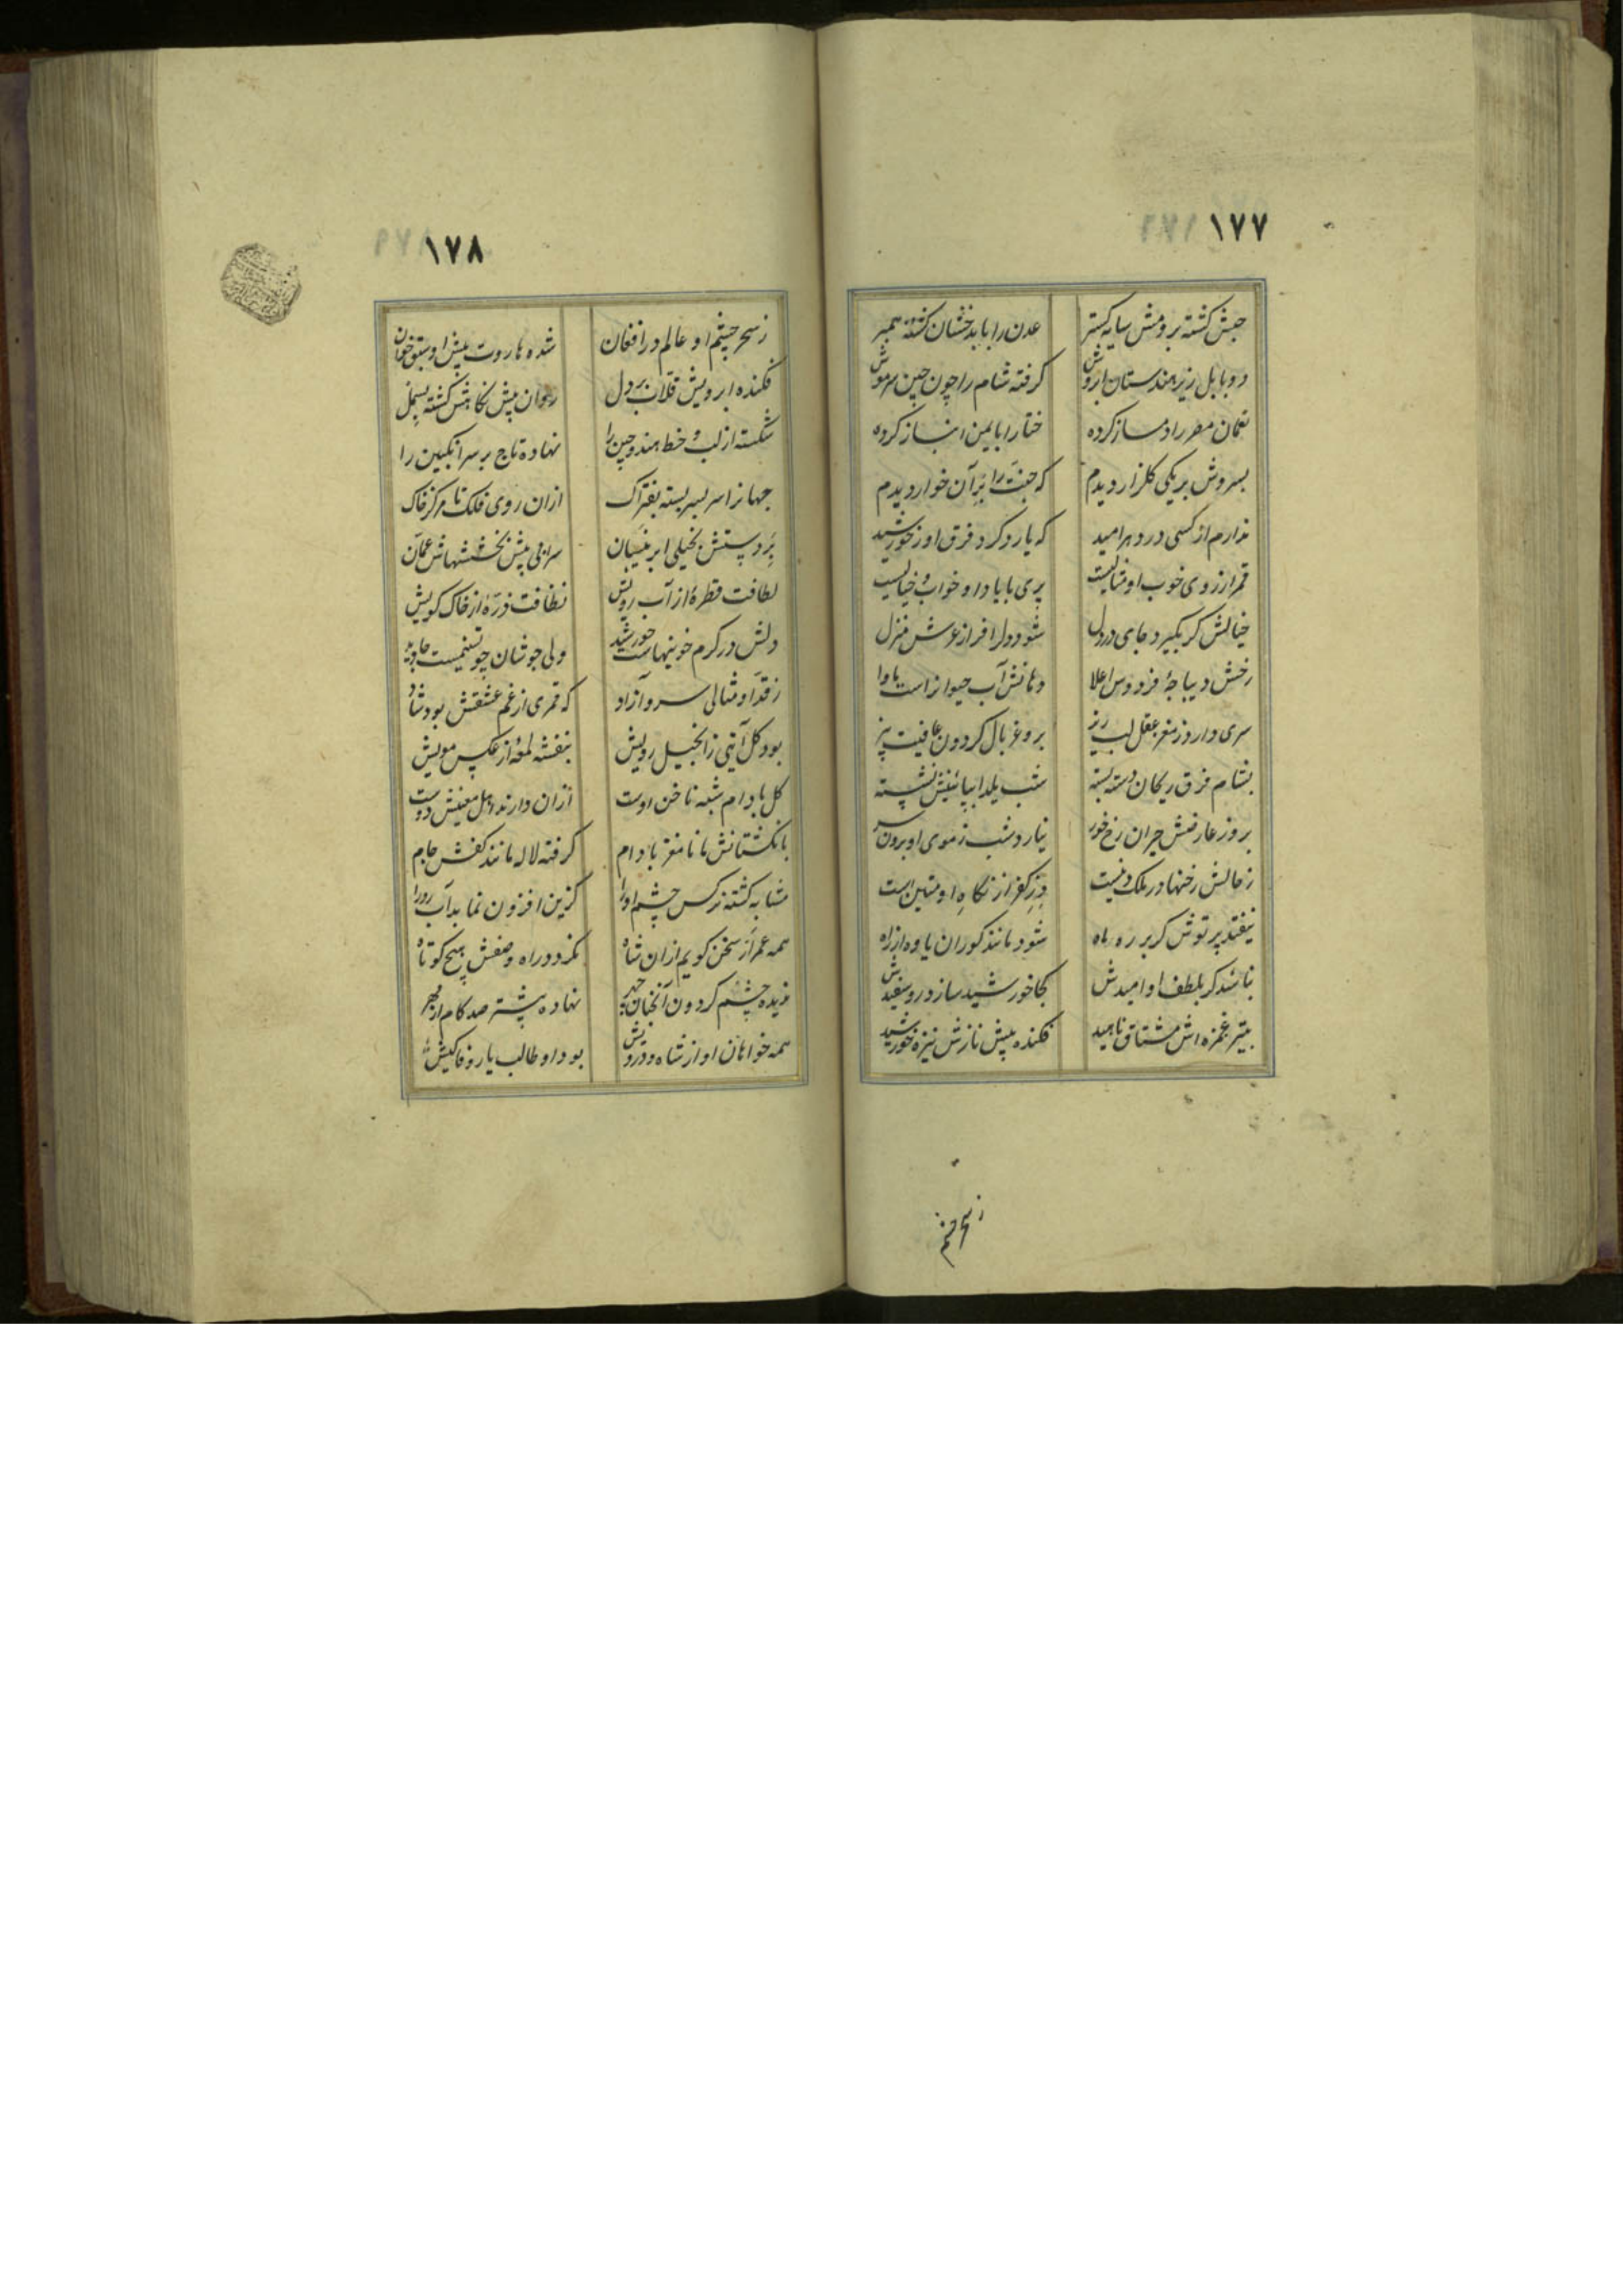 ١٧٧
حبش کشته برومش سایه کستر
عدن را با بدخشان کشته همبر
دو بابل زیر هندستان ابروش
کرفته شام را چون چین سر موش
نعمان مصر را دمساز کرده
ختا را با یمن انباز کرده
بسروش بر یکی کلزار دیدم
که جنت را بر آن خوار دیدم
ندارم از کسی در دهر امید
که یارد کرد فرق او ز خورشید
قمر از روی خوب او مثالیست
پری با یاد او خواب و خیالیست
خیالش کر بگیرد جای در دل
شود دل را فراز عرش منزل
رخش دیباجهٔ فردوس اعلا
دهانش آب حیوانراست ماوا
سری دارد ز مغز عقل لب ریز
برو غربال کردون عافیت بیز
بشام فرق ریحان دسته بسته
شب یلدا بپائینش نشسته
بروز عارضش حیران رخ خور
نیارد شب ز موی او برون سر
ز خالش رخنها در ملک دینست
در کفر از نکاه او متین است
نیفتد پرتوش کر بر ره ماه
شود مانند کوران یاوه از راه
نباشد کر بلطف او امیدش
کجا خورشید سازد رو سفیدش
بتیر غمزه اش مشتاق ناهید
فکنده پیش نازش نیزه خورشید
ز سحر چشم
١٧٨
ز سحر چشم او عالم در افغان
شده هاروت پیش او سبق خوان
فکنده ابرویش قلاب بر دل
روان پیش نکاهش کشته بسمل
شکسته از لب و خط هند و چین را
نهاده تاج بر سر انکبین را
جهانرا سر بسر بسته بفتراک
ازان روی فلک تا مرکز خاک
بر دستش بخیلی ابر نیسان
سرابی پیش بخششهاش عمان
لطافت قطرهٔ از آب رویش
نظافت ذرهٔ از خاک کویش
دلش در کرم خوئیهاست خورشید
ولی جوشان چو تسنیمست جاوید
ز قد او مثالی سرو آزاد
که قمری از غم عشقش بود شاد
بود کل آیتی ز انجیل رویش
بنفشه لمعهٔ از عکس مویش
کل بادام شبه ناخن اوست
ازان دارند اهل معنیش دوست
بانکشتانش مانا مغز بادام
کرفته لاله مانند کفش جام
مشابه کشته نرکس چشم او را
کزین افزون نماید آب رو را
همه عمر از سخن کویم ازان شاه
نکردد راه وصفش هیچ کوتاه
ندیده چشم کردون آنچنان چهر
نهاده پیشتر صد کام از مهر
همه خواهان او از شاه و درویش
بود او طالب یار وفا کیش